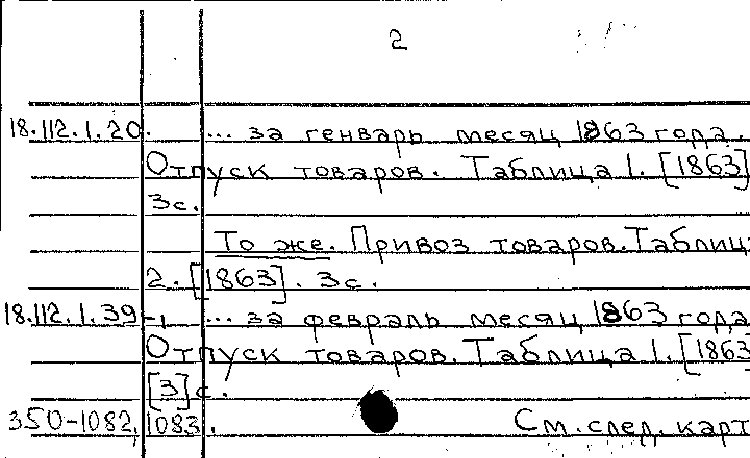 2
18.112.1.20. ... за генварь месяц 1863 года.
Отпуск товаров. Таблица 1. [1863]
3с.
То же. Привоз товаров. Таблиц
2. [1863]. 3с.
18.112.1.39-1 ... за февраль месяц 1863 года
Отпуск товаров. Таблица 1. [1863
[3]с.
350-1082, 1083. См. след. карт